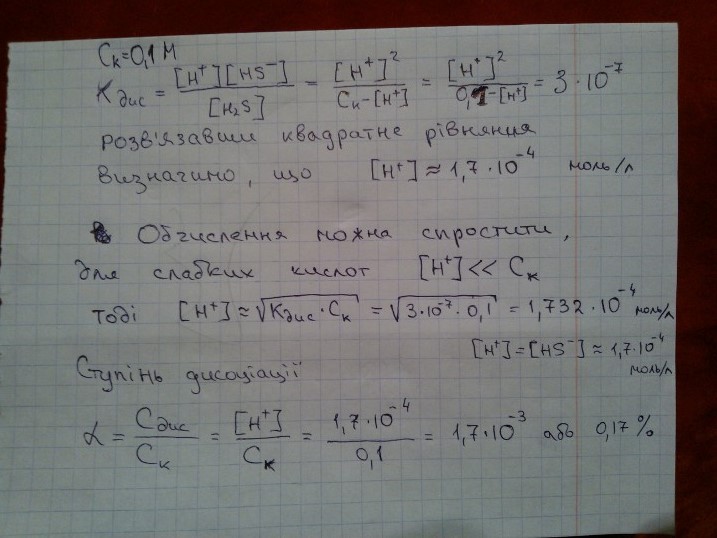 Cк=0,1 М
Kдис = [H⁺][HS⁻]/[H₂S] = [H⁺]²/Cк-[H⁺] = [H⁺]²/0,1-[H⁺] = 3·10⁻⁷
розв'язавши квадратне рівняння
визначимо, що [H⁺] ≈ 1,7·10⁻⁴ моль/л
Обчислення можна спростити,
для слабких кислот [H⁺] << Cк
тоді [H⁺] ≈ √Kдис·Cк = √3·10⁻⁷·0,1 = 1,732·10⁻⁴ моль/л
[H⁺]=[HS⁻] ≈ 1,7·10⁻⁴
моль/л
Ступінь дисоціації
α = Cдис/Cк = [H⁺]/Cк = 1,7·10⁻⁴/0,1 = 1,7·10⁻³ або 0,17%